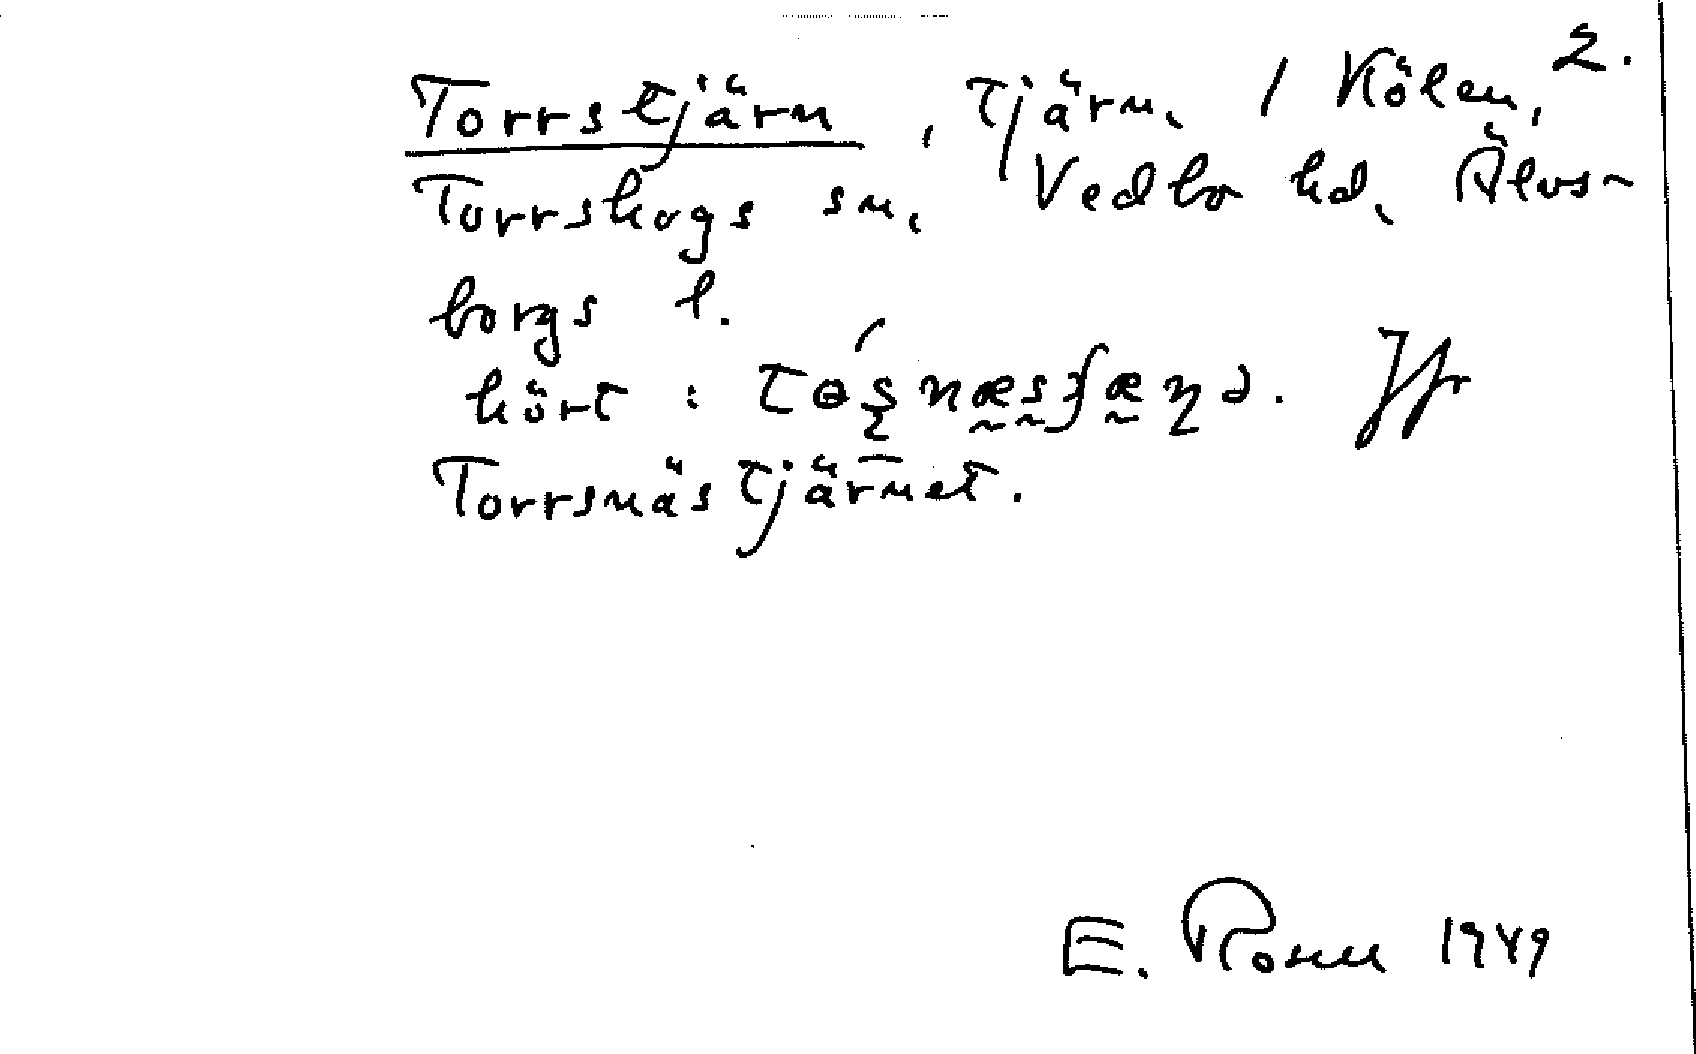 2.
Torrstjärn, Tjärn, / Kölen,
Torrskogs sn, Vedbo hd, Älvs-
borgs l.
hört:
Jfr
Torrsnästjärnet.
E. Rosell 1949